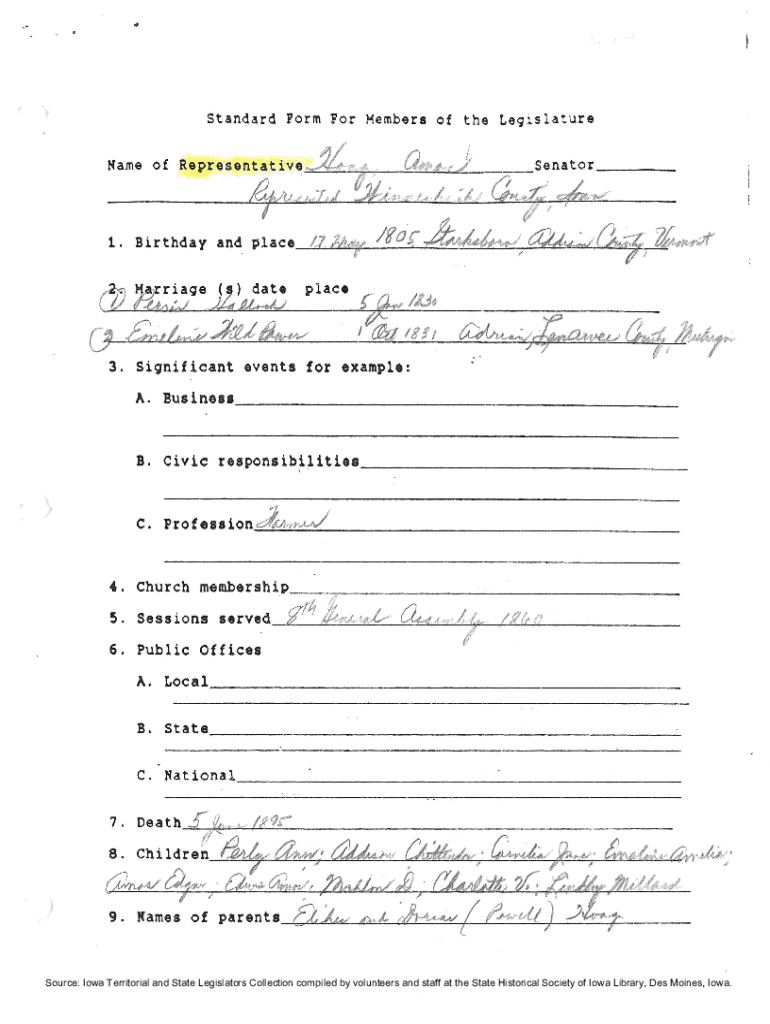 Standard Form For Members of the Legislature
Name of Representative Hoag, Amos Senator
Represented Winneshiek County, Iowa
1. Birthday and place 17 May 1805 Starksboro, Addison County, Vermont
2. Marriage (s) date place
(1) Persis Hallock 5 Jan 1830
(2) Emeline Wild Power 1 Oct 1831 Adrian, Lenawee County, Michigan
3. Significant events for example:
A. Business
B. Civic responsibilities
C. Profession Farmer
4. Church membership
5. Sessions served 8th General Assembly 1860
6. Public Offices
A. Local
B. State
C. National
7. Death 5 1895
8. Children Perly Ann; Addison Chittenden; Cornelia Jane; Emeline Amelia;
Amos Edgar; Mahlon D; Charlotte V.; Lindley Millard
9. Names of parents and (Powell) Hoag
Source: Iowa Territorial and State Legislators Collection compiled by volunteers and staff at the State Historical Society of Iowa Library, Des Moines, Iowa.